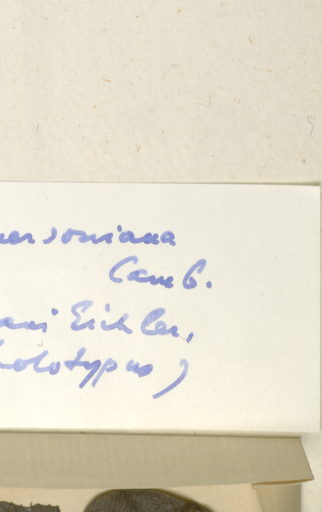 mersoniana
Camb.
ani Eichler,
holotypus)